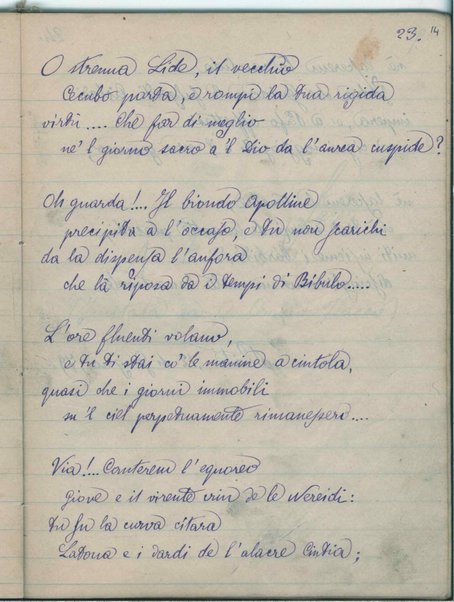 23. 14
O strenua Lide, il vecchio
Cecubo porta, e rompi la tua rigida
virtù.... Che far di meglio
ne 'l giorno sacro a 'l Dio da l'aurea cuspide?
Oh guarda!... Il biondo Apolline
precipita a l'occaso, e tu non scarichi
da la dispensa l'anfora
che là riposa da i tempi di Bibulo.....
L'ore fluenti volano,
e tu ti stai co' le manine a cintola,
quasi che i giorni immobili
su 'l ciel perpetuamente rimanessero....
Via!... Canterem l'equoreo
Giove e il virente crin de le Nereidi:
tu su la curva citara
Latona e i dardi de l'alacre Cintia;